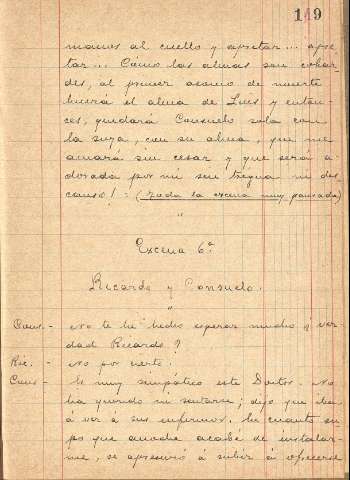 119
manos al cuello y apretar... apre
tar... Cómo las almas son cobar
des, al primer asomo de muerte
huirá el alma de Luis y enton
ces, quedará Consuelo sola con
la suya, con su alma, que me
amará sin cesar y que será a-
dorada por mi sin tregua ni des
canso! = (Toda la escena muy pausada)
"
Escena 6ª
Ricardo y Consuelo.
"
Cons.- - No te he hecho esperar mucho ¿ver
dad Ricardo?
Ric.- - No por cierto.
Cons - Es muy simpático este Doctor. No
ha querido ni sentarse; dijo que iba
á ver á sus enfermos. En cuanto su
po que anoche acabé de instalar-
me, se apresuró á subir á ofrecerse